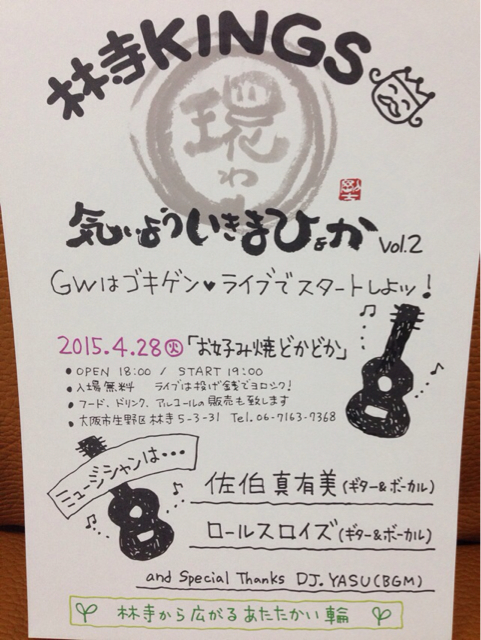 林寺KINGS
環
わ
気いよういきまひょか vol.2
GWはゴキゲン♥ライブでスタートしよッ!
2015.4.28㊋「お好み焼どかどか」
● OPEN 18:00 / START 19:00
● 入場無料 ライブは投げ銭でヨロシク!
● フード、ドリンク、アルコールの販売も致します
● 大阪市生野区林寺5-3-31 Tel.06-7163-7368
ミュージシャンは・・・
佐伯真有美(ギター&ボーカル)
ロールスロイズ(ギター&ボーカル)
and Special Thanks DJ.YASU(BGM)
林寺から広がるあたたかい輪